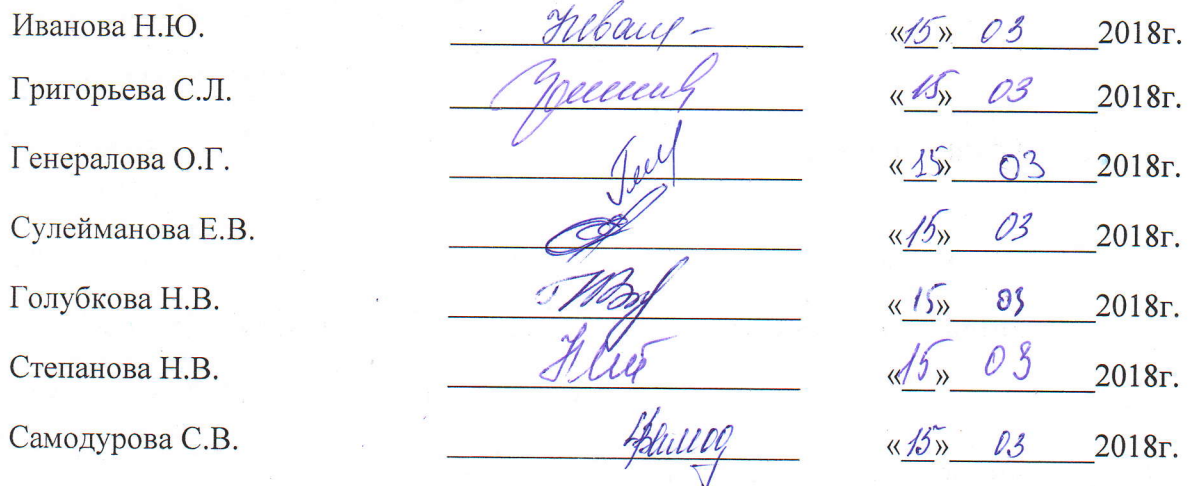 Иванова Н.Ю. «15» 03 2018г.
Григорьева С.Л. «15» 03 2018г.
Генералова О.Г. «15» 03 2018г.
Сулейманова Е.В. «15» 03 2018г.
Голубкова Н.В. «15» 03 2018г.
Степанова Н.В. «15» 03 2018г.
Самодурова С.В. «15» 03 2018г.